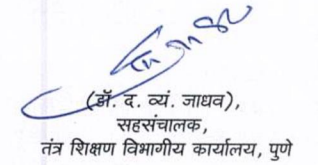 (डॉ. द. व्यं. जाधव),
सहसंचालक,
तंत्र शिक्षण विभागीय कार्यालय, पुणे